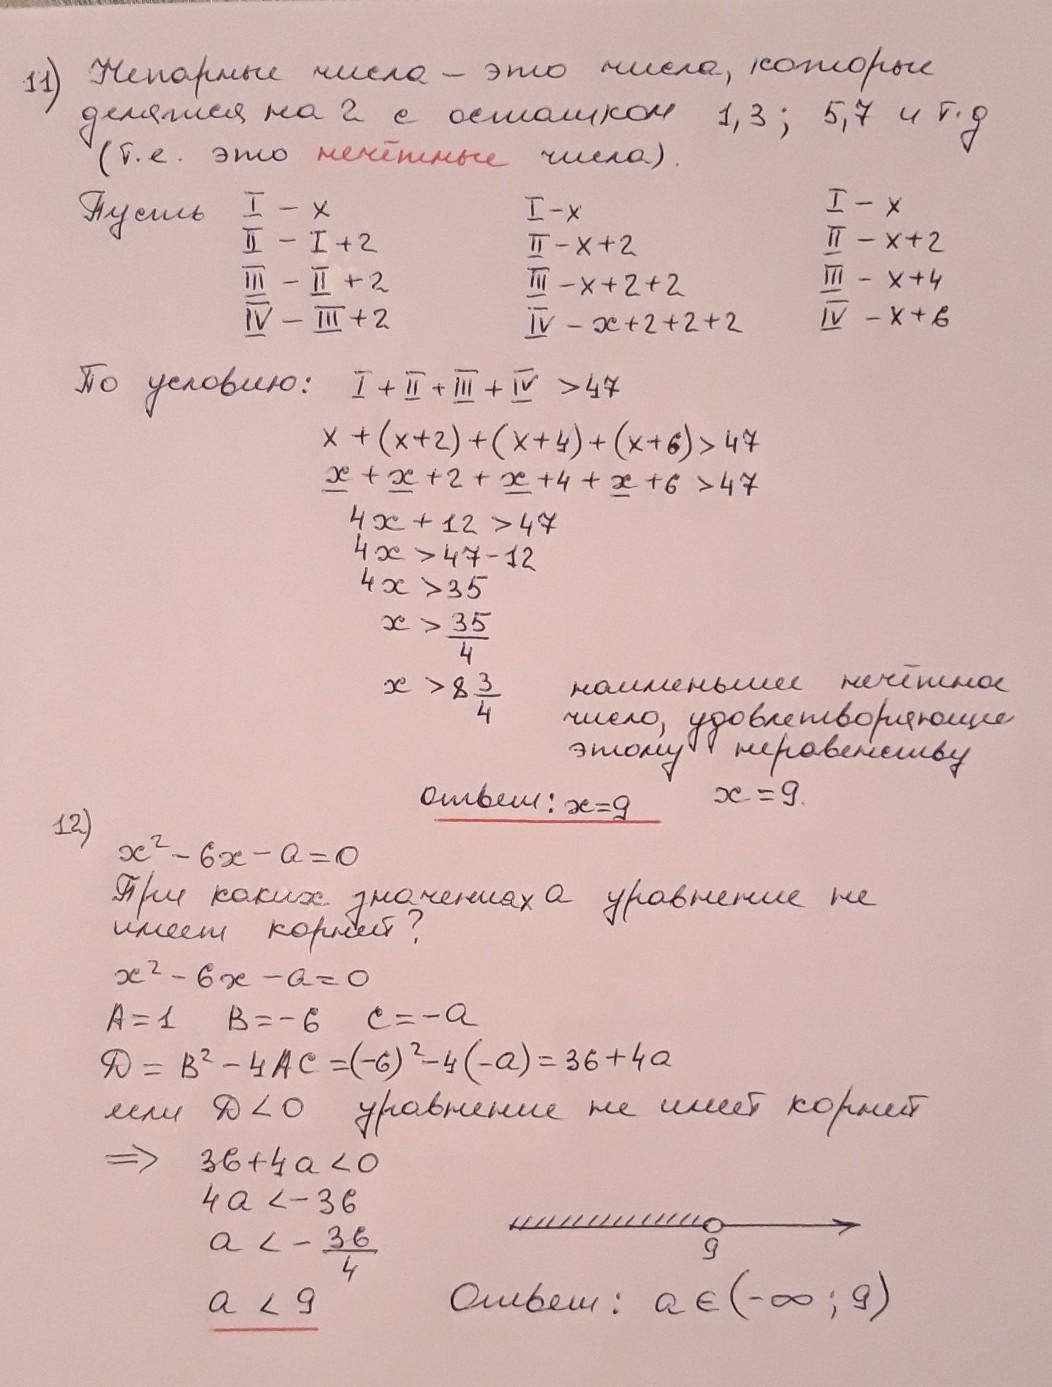 11) Непарные числа – это числа, которые
делятся на 2 с остатком 1,3; 5,7 и т.д
(т.е. это нечётные числа).
Пусть I – x I – x I – x
II – I + 2 II – x + 2 II – x + 2
III – II + 2 III – x + 2 + 2 III – x + 4
IV – III + 2 IV – x + 2 + 2 + 2 IV – x + 6
По условию: I + II + III + IV > 47
x + (x+2) + (x+4) + (x+6) > 47
x + x + 2 + x + 4 + x + 6 > 47
4x + 12 > 47
4x > 47 - 12
4x > 35
x > 35/4
x > 8 3/4 наименьшее нечётное
число, удовлетворяющие
этому неравенству
Ответ: x = 9 x = 9.
12)
x² - 6x - a = 0
При каких значениях a уравнение не
имеет корней?
x² - 6x - a = 0
A = 1 B = -6 C = -a
D = B² - 4AC = (-6)² - 4(-a) = 36 + 4a
если D < 0 уравнение не имеет корней
=> 36 + 4a < 0
4a < -36
a < - 36/4
9
a < 9 Ответ: a ∈ (-∞; 9)